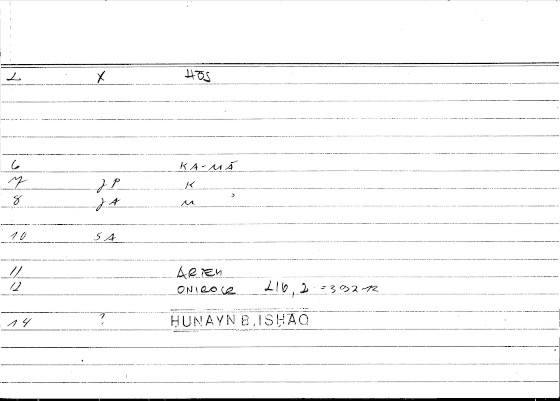 L X HŌS
6 KA-MĀ
7 JP K
8 JA M
10 SA
11 ARTEM
12 ONIROCR LIG, 2 =
14 ? HUNAYN B. ISHAQ